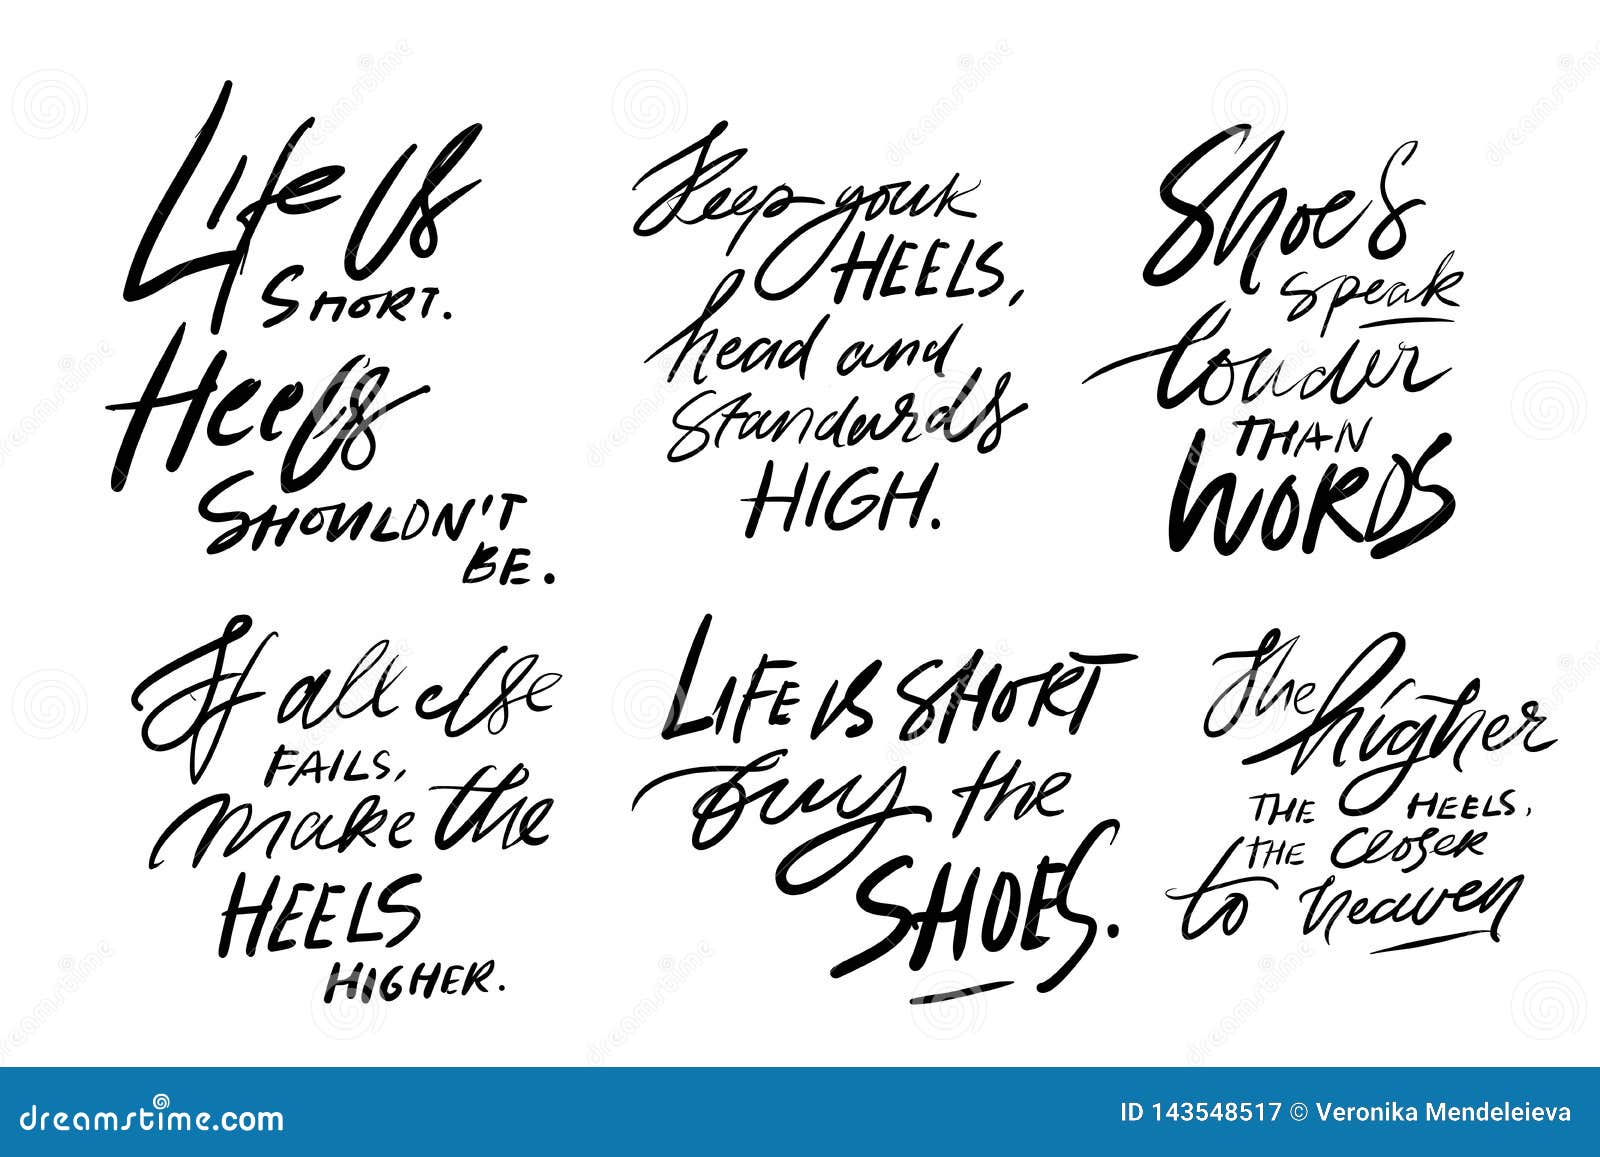 Life is
short.
Heels
shouldn't
be.
Keep your
HEELS,
head and
standards
HIGH.
Shoes
speak
louder
THAN
WORDS
If all else
FAILS,
make the
HEELS
HIGHER.
LIFE IS SHORT
buy the
SHOES.
The higher
THE HEELS,
THE closer
to heaven
dreamstime.com
ID 143548517 © Veronika Mendeleieva